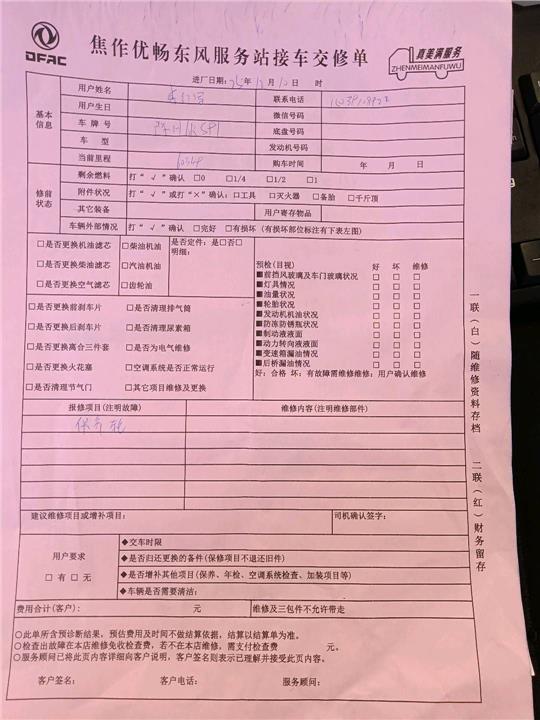 DFAC
焦作优畅东风服务站接车交修单
真美满服务
ZHENMEIMANFUWU
进厂日期: 年 月 日 时
基本信息
用户姓名 联系电话
用户生日 微信号码
车 牌 号 底盘号码
车 型 发动机号码
当前里程 购车时间 年 月 日
修前状态
剩余燃料 打“√”确认 □0 □1/4 □1/2 □1
附件状况 打“√”或打“×”确认:□工具 □灭火器 □备胎 □千斤顶
其它装备 用户寄存物品
车辆外部情况 打“√”确认 □完好 □有损坏(有损坏部位标注有下表左图)
□是否更换机油滤芯 □柴油机油 是否定件:是□否□
明细:
□是否更换柴油滤芯 □汽油机油
□是否更换空气滤芯 □齿轮油
预检(目视) 好 坏 维修
■前挡风玻璃及车门玻璃状况 □ □ □
■灯具情况 □ □ □
■油量状况 □ □ □
■轮胎状况 □ □ □
■发动机机油状况 □ □ □
■防冻防锈瓶状况 □ □ □
■制动液液面 □ □ □
■动力转向液液面 □ □ □
■变速箱漏油情况 □ □ □
■后桥漏油情况 □ □ □
好:合格 坏:有故障需维修维修:用户确认维修
□是否更换前刹车片 □是否清理排气筒
□是否更换后刹车片 □是否清理尿素箱
□是否更换离合三件套 □是否为电气维修
□是否更换火花塞 □空调系统是否正常运行
□是否清理节气门 □其它项目维修及更换
报修项目(注明故障) 维修内容(注明维修部件)
保养
建议维修项目或增补项目: 司机确认签字:
用户要求
□有□无
◆交车时限
◆是否归还更换的备件(保修项目不退还旧件)
◆是否增补其他项目(保养、年检、空调系统检查、加装项目等)
◆车辆是否需要清洁:
费用合计(客户): 元 维修及三包件不允许带走
○此单所含预诊断结果,预估费用及时间不做结算依据,结算以结算单为准。
○检查出故障在本店维修免收检查费,若不在本店维修,需支付检查费 元。
○服务顾问已将此页内容详细向客户说明,客户签名则表示已理解并接受此页内容。
客户签名: 客户电话: 服务顾问:
一联(白)随维修资料存档 二联(红)财务留存